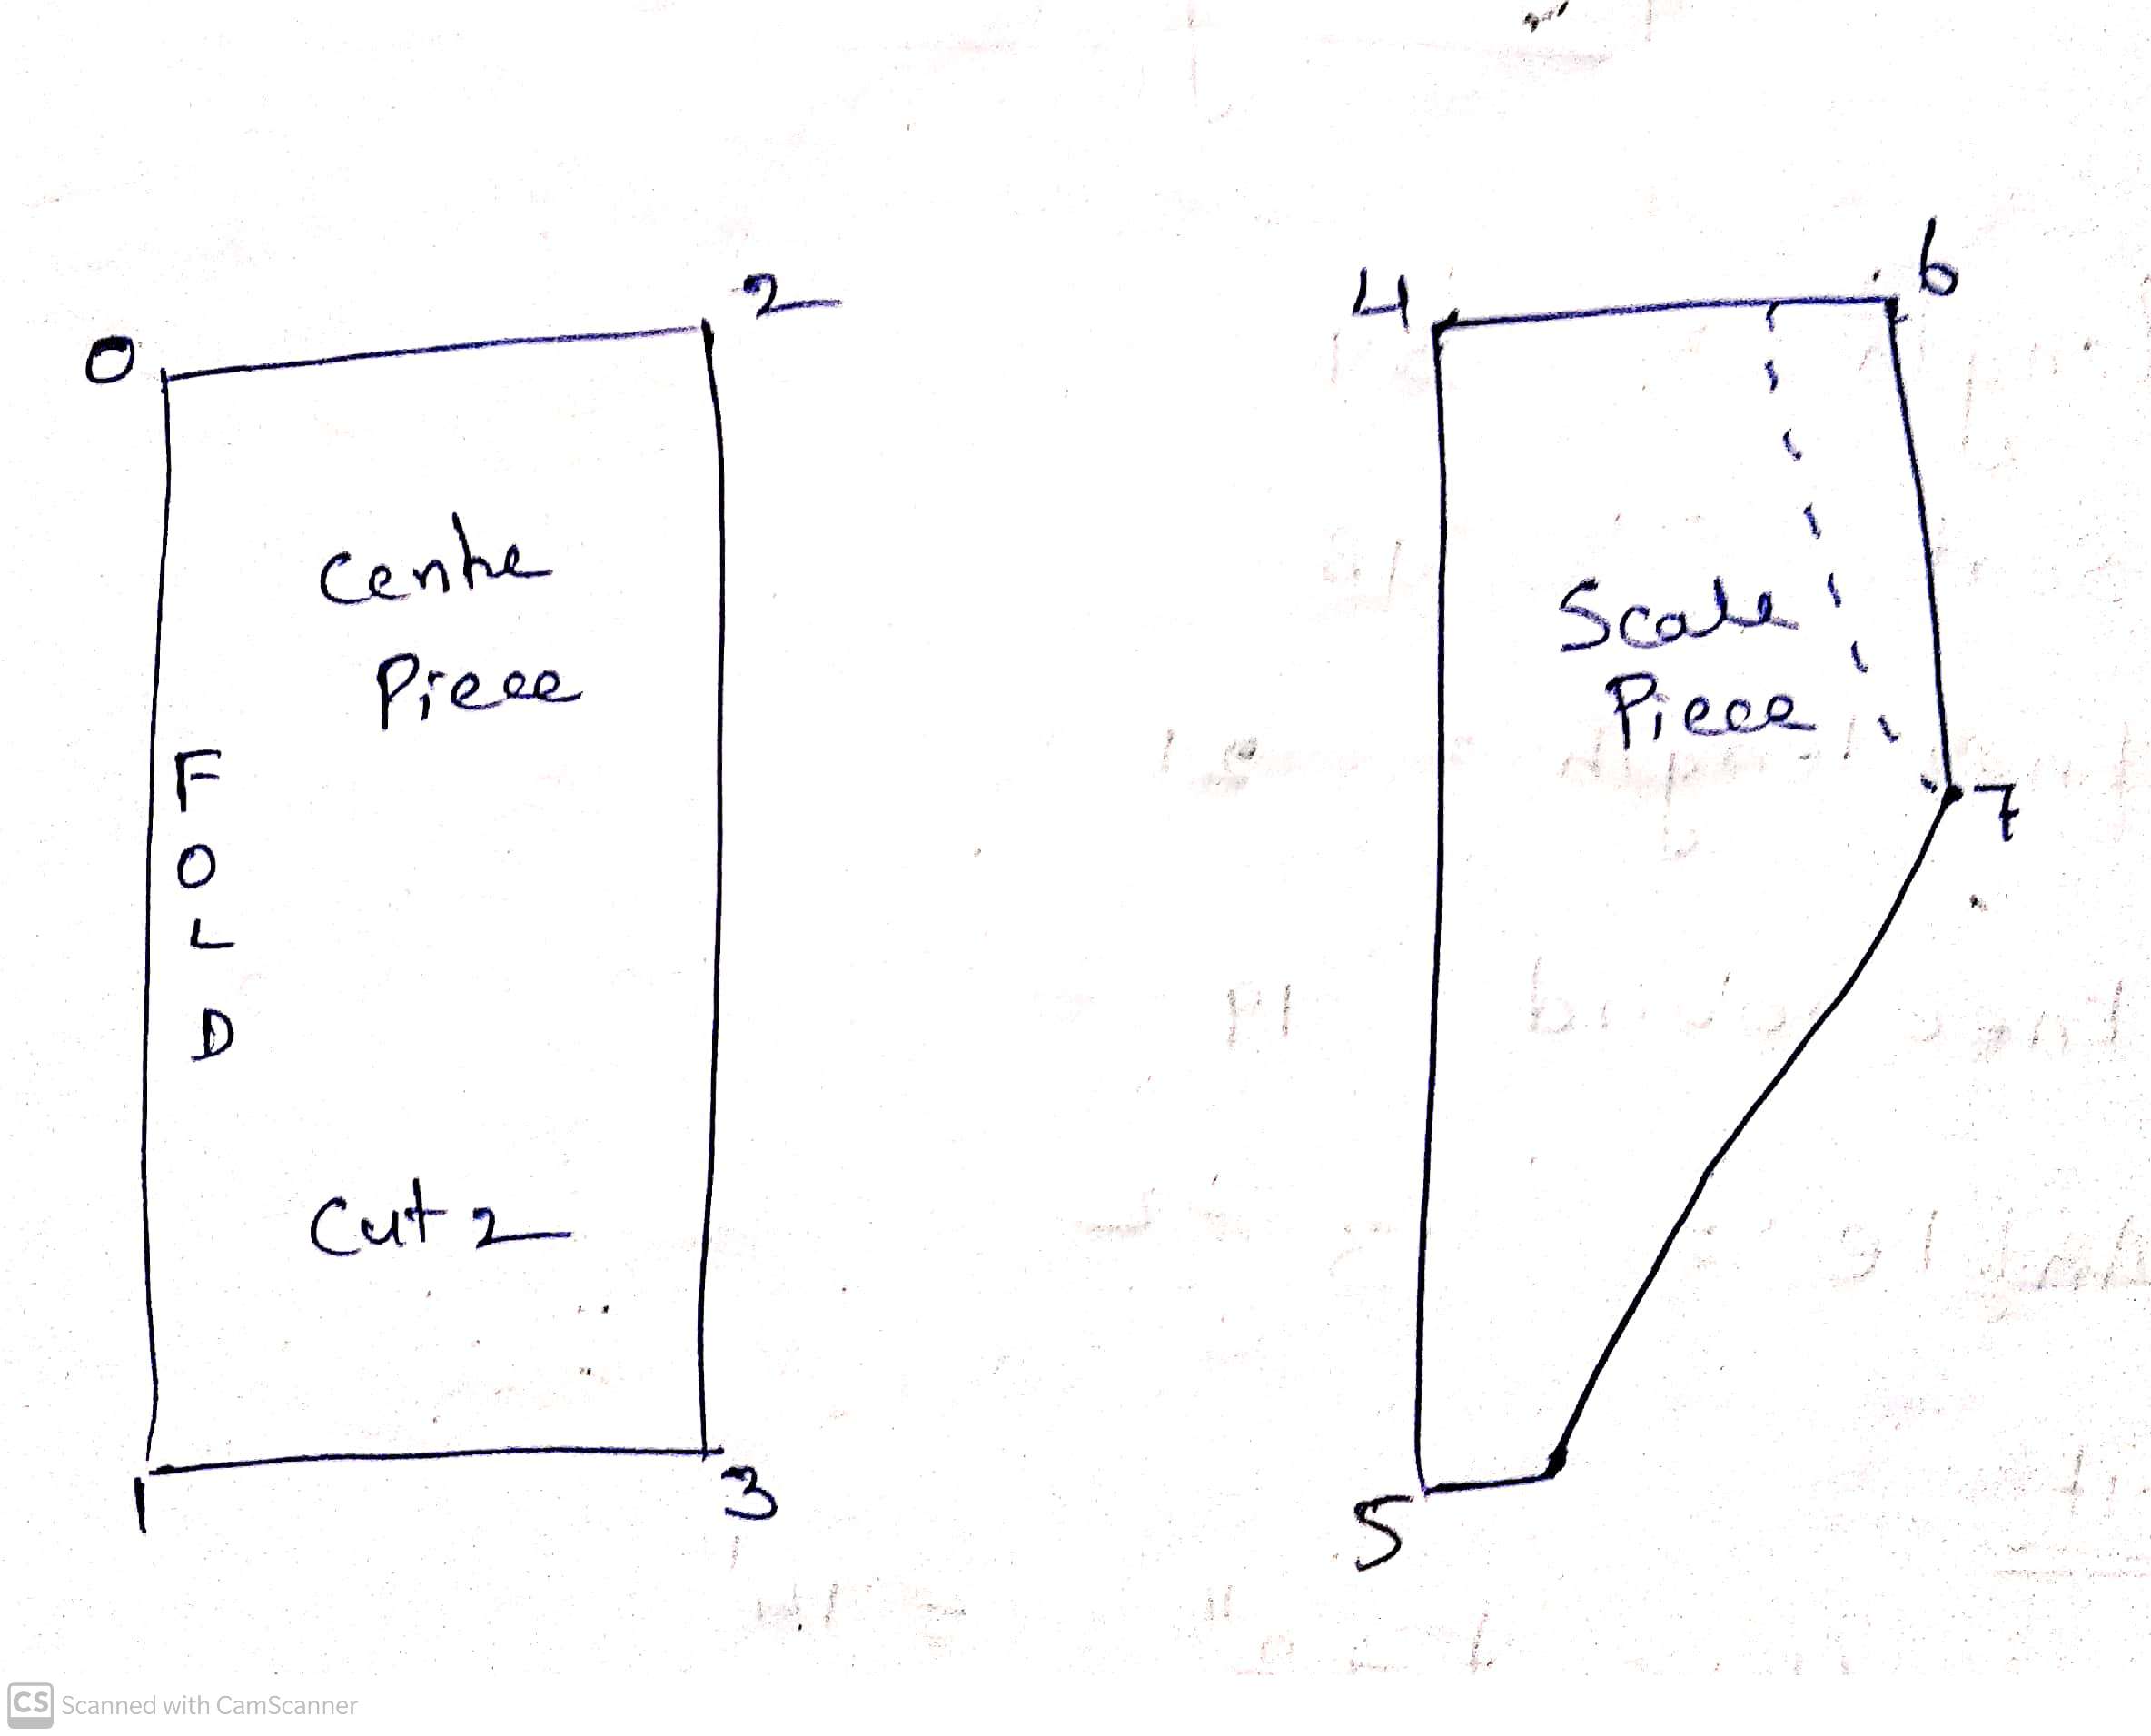 0
2
Centre
Piece
F
O
L
D
Cut 2
1
3
4
6
Scale
Piece
7
5
CS Scanned with CamScanner